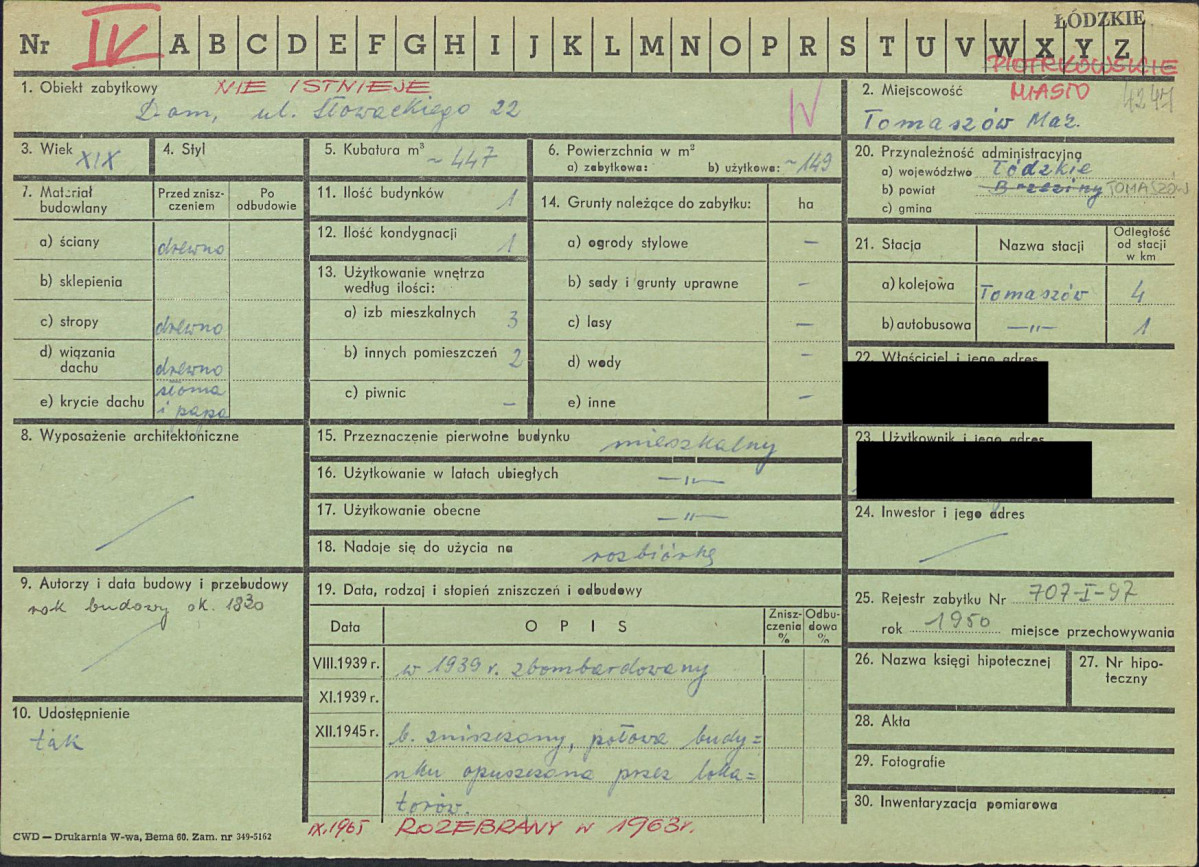 ŁÓDZKIE
Nr IV A B C D E F G H I J K L M N O P R S T U V W X Y Z
PIOTRKOWSKIE
1. Obiekt zabytkowy NIE ISTNIEJE
Dom, ul. Słowackiego 22
IV
2. Miejscowość MIASTO 4241
Tomaszów Maz.
3. Wiek XIX
4. Styl
5. Kubatura m³ ~447
6. Powierzchnia w m²
a) zabytkowa: b) użytkowa: ~149
20. Przynależność administracyjna
a) województwo Łódzkie
b) powiat Brzeziny TOMASZÓW
c) gmina
7. Materiał budowlany
Przed zniszczeniem
Po odbudowie
a) ściany drewno
b) sklepienia
c) stropy drewno
d) wiązania dachu drewno
e) krycie dachu słoma i papa
11. Ilość budynków 1
12. Ilość kondygnacji 1
13. Użytkowanie wnętrza
według ilości:
a) izb mieszkalnych 3
b) innych pomieszczeń 2
c) piwnic –
14. Grunty należące do zabytku: ha
a) ogrody stylowe –
b) sady i grunty uprawne –
c) lasy –
d) wody –
e) inne –
21. Stacja Nazwa stacji Odległość od stacji w km
a) kolejowa Tomaszów 4
b) autobusowa —„— 1
22. Właściciel i jego adres
23. Użytkownik i jego adres
24. Inwestor i jego adres
8. Wyposażenie architektoniczne
15. Przeznaczenie pierwotne budynku mieszkalny
16. Użytkowanie w latach ubiegłych —„—
17. Użytkowanie obecne —„—
18. Nadaje się do użycia na rozbiórkę
9. Autorzy i data budowy i przebudowy
rok budowy ok. 1820
10. Udostępnienie
tak
19. Data, rodzaj i stopień zniszczeń i odbudowy
Data OPIS Zniszczenia % Odbudowa %
VIII.1939 r. w 1939 r. zbombardowany
XI.1939 r.
XII.1945 r. b. zniszczony, połowa budy=
nku opuszczona przez loka=
torów.
IX.1965 ROZEBRANY w 1963r.
25. Rejestr zabytku Nr 707-I-97
rok 1950 miejsce przechowywania
26. Nazwa księgi hipotecznej
27. Nr hipoteczny
28. Akta
29. Fotografie
30. Inwentaryzacja pomiarowa
CWD — Drukarnia W-wa, Bema 60. Zam. nr 349-5162